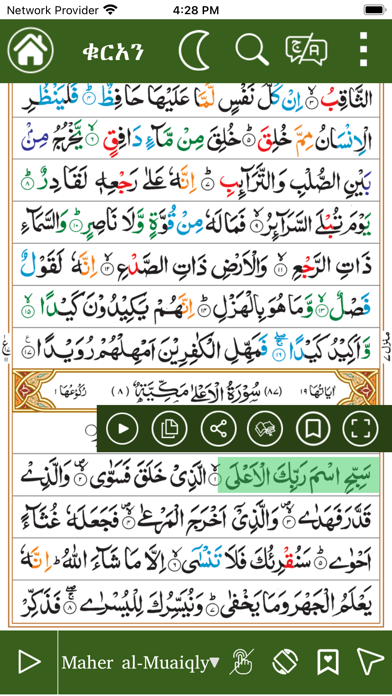 Network Provider 4:28 PM
ቁርአን
الثَّاقِبُ ۙ﴿۳﴾ اِنْ كُلُّ نَفْسٍ لَّمَّا عَلَيْهَا حَافِظٌ ؕ﴿۴﴾ فَلْيَنْظُرِ
الْاِنْسَانُ مِمَّ خُلِقَ ؕ﴿۵﴾ خُلِقَ مِنْ مَّآءٍ دَافِقٍ ۙ﴿۶﴾ يَّخْرُجُ مِنْۢ
بَيْنِ الصُّلْبِ وَالتَّرَآئِبِ ؕ﴿۷﴾ اِنَّهٗ عَلٰى رَجْعِهٖ لَقَادِرٌ ؕ﴿۸﴾
يَوْمَ تُبْلَى السَّرَآئِرُ ۙ﴿۹﴾ فَمَا لَهٗ مِنْ قُوَّةٍ وَّلَا نَاصِرٍ ؕ﴿۱۰﴾ وَالسَّمَآءِ
ذَاتِ الرَّجْعِ ۙ﴿۱۱﴾ وَالْاَرْضِ ذَاتِ الصَّدْعِ ۙ﴿۱۲﴾ اِنَّهٗ لَقَوْلٌ
فَصْلٌ ۙ﴿۱۳﴾ وَّمَا هُوَ بِالْهَزْلِ ؕ﴿۱۴﴾ اِنَّهُمْ يَكِيْدُوْنَ كَيْدًا ۙ﴿۱۵﴾
وَّاَكِيْدُ كَيْدًا ۚۖ﴿۱۶﴾ فَمَهِّلِ الْكٰفِرِيْنَ اَمْهِلْهُمْ رُوَيْدًا ﴿۱۷﴾
منزل ۷
اٰيَاتُهَا ۱۹ (۸۷) سُوْرَةُ الْاَعْلٰى مَكِّيَّةٌ (۸) رُكُوْعُهَا ۱
سَبِّحِ اسْمَ رَبِّكَ الْاَعْلَى ۙ﴿۱﴾ الَّذِيْ خَلَقَ فَسَوّٰى ۪ۙ﴿۲﴾ وَالَّذِيْ
قَدَّرَ فَهَدٰى ۪ۙ﴿۳﴾ وَالَّذِيْۤ اَخْرَجَ الْمَرْعٰى ۪ۙ﴿۴﴾ فَجَعَلَهٗ غُثَآءً
اَحْوٰى ؕ﴿۵﴾ سَنُقْرِئُكَ فَلَا تَنْسٰۤى ۙ﴿۶﴾ اِلَّا مَا شَآءَ اللّٰهُ ؕ اِنَّهٗ
يَعْلَمُ الْجَهْرَ وَمَا يَخْفٰى ؕ﴿۷﴾ وَنُيَسِّرُكَ لِلْيُسْرٰى ۚۖ﴿۸﴾ فَذَكِّرْ
Maher al-Muaiqly